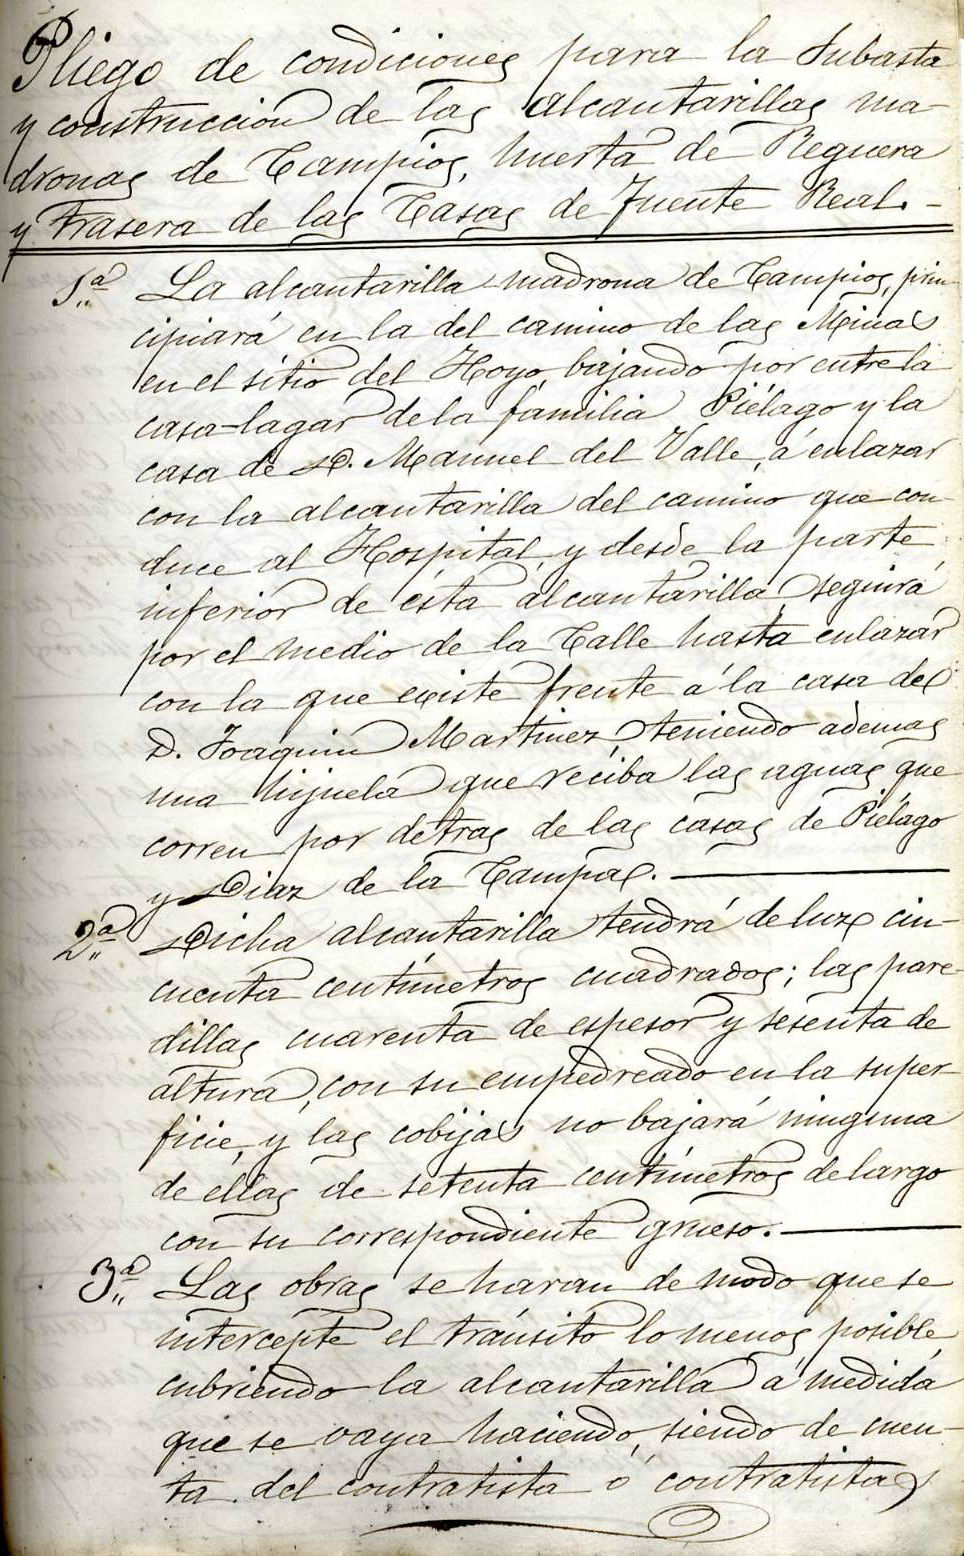 Pliego de condiciones para la Subasta
y construccion de las alcantarillas ma-
dronas de Campios, huerta de Reguera
y trasera de las Casas de Fuente Real.-
1.ª La alcantarilla madrona de Campios, prin-
cipiará en la del camino de las Minas
en el sitio del Hoyo, bajando por entre la
casa-lagar de la familia Piélago y la
casa de D. Manuel del Valle, á enlazar
con la alcantarilla del camino que con-
duce al Hospital, y desde la parte
inferior de ésta alcantarilla, seguirá
por el medio de la Calle hasta enlazar
con la que existe frente á la casa de
D. Joaquin Martinez, teniendo ademas
una hijuela que reciba las aguas que
corren por detras de las casas de Piélago
y Diaz de la Campa.
2.ª Dicha alcantarilla tendrá de luz cin-
cuenta centímetros cuadrados; las pare-
dillas cuarenta de espesor y sesenta de
altura, con su empedreado en la super-
ficie, y las cobijas no bajará ninguna
de éllas de setenta centímetros de largo
con su correspondiente grueso.
3.ª Las obras se haran de modo que se
intercepte el tránsito lo menos posible,
cubriendo la alcantarilla á medida
que se vaya haciendo, siendo de cuen-
ta del contratista ó contratistas